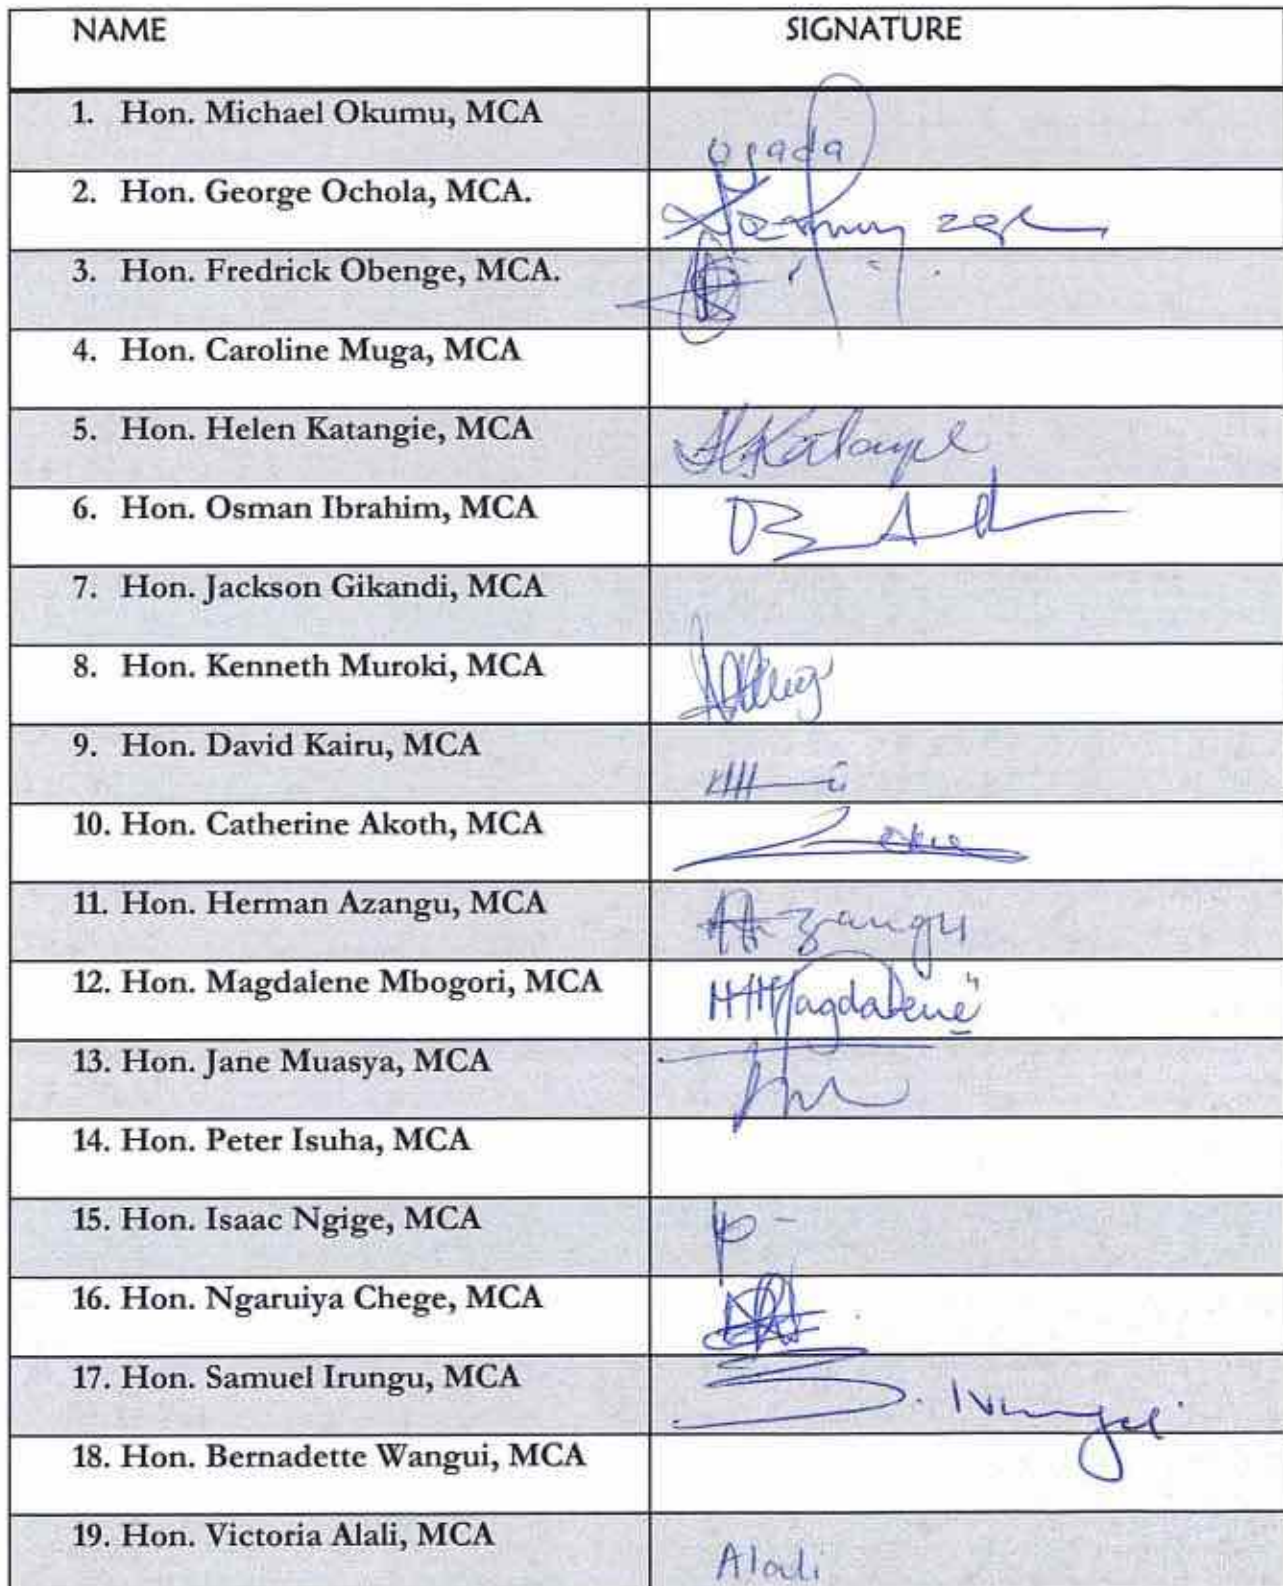 NAME SIGNATURE
1. Hon. Michael Okumu, MCA Ogada
2. Hon. George Ochola, MCA.
3. Hon. Fredrick Obenge, MCA.
4. Hon. Caroline Muga, MCA
5. Hon. Helen Katangie, MCA
6. Hon. Osman Ibrahim, MCA
7. Hon. Jackson Gikandi, MCA
8. Hon. Kenneth Muroki, MCA
9. Hon. David Kairu, MCA
10. Hon. Catherine Akoth, MCA
11. Hon. Herman Azangu, MCA Azangu
12. Hon. Magdalene Mbogori, MCA Magdalene
13. Hon. Jane Muasya, MCA
14. Hon. Peter Isuha, MCA
15. Hon. Isaac Ngige, MCA
16. Hon. Ngaruiya Chege, MCA
17. Hon. Samuel Irungu, MCA
18. Hon. Bernadette Wangui, MCA
19. Hon. Victoria Alali, MCA Alali